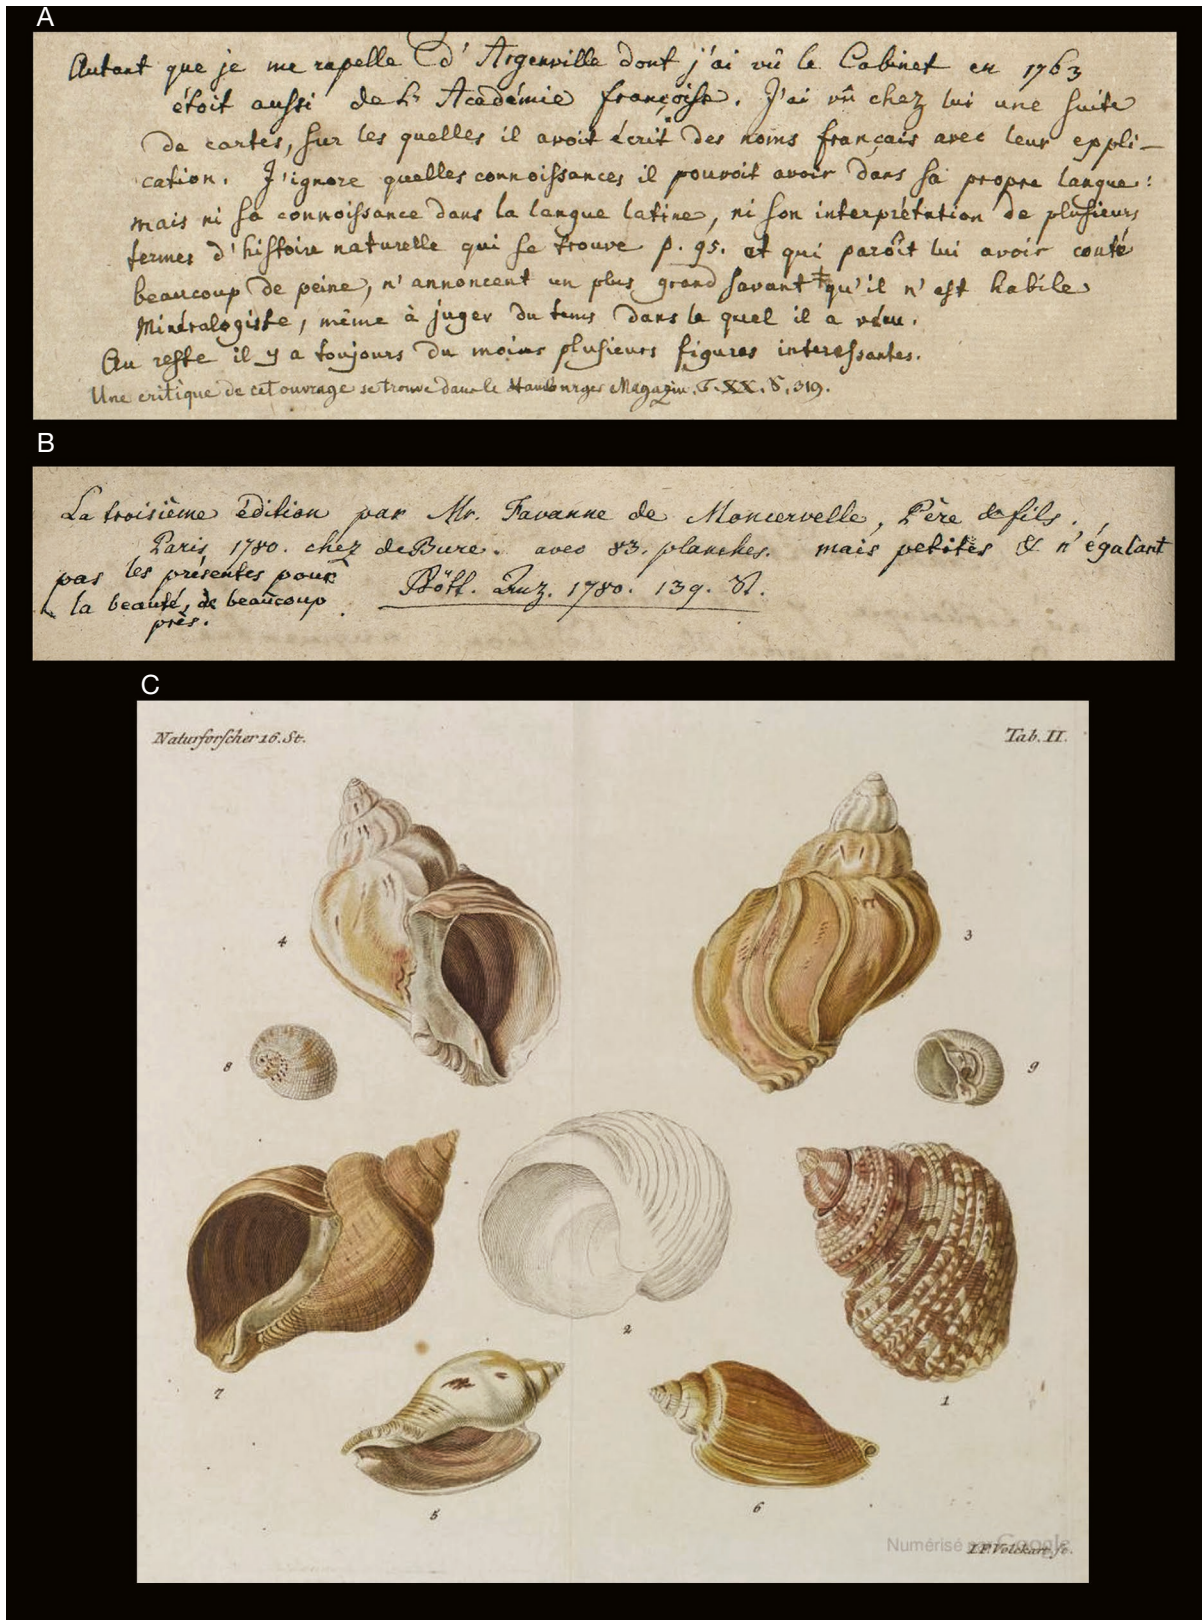 A
Autant que je me rapelle d'Argenville dont j'ai vû le Cabinet en 1763
étoit aussi de l' Académie françoise. J'ai vû chez lui une suite
de cartes, sur les quelles il avoit écrit des noms français avec leur eppli-
cation. J'ignore quelles connoissances il pouvoit avoir dans sa propre langue:
mais ni sa connoissance dans la langue latine, ni son interprétation de plusieurs
termes d'histoire naturelle qui se trouve p. 95. et qui paroît lui avoir couté
beaucoup de peine, n'annoncent un plus grand savant qu'il n'est habile
Minéralogiste, même à juger du tems dans le quel il a vécu.
Au reste il y a toujours du moins plusieurs figures interessantes.
Une critique de cet ouvrage se trouve dans le Hamburges Magazin. T. XX. S. 319.
B
La troisième édition par Mr. Favanne de Moncervelle, Père & fils.
Paris 1780. chez de Bure. avec 83. planches. mais petites & n'égalant
pas les présentes pour
la beauté, de beaucoup
près.
1780. 139. S.
C
Naturforscher 16. St.
Tab. II.
4
3
8
9
2
7
1
5
6
Numérisé par Google
I.F. Volckart. sc.